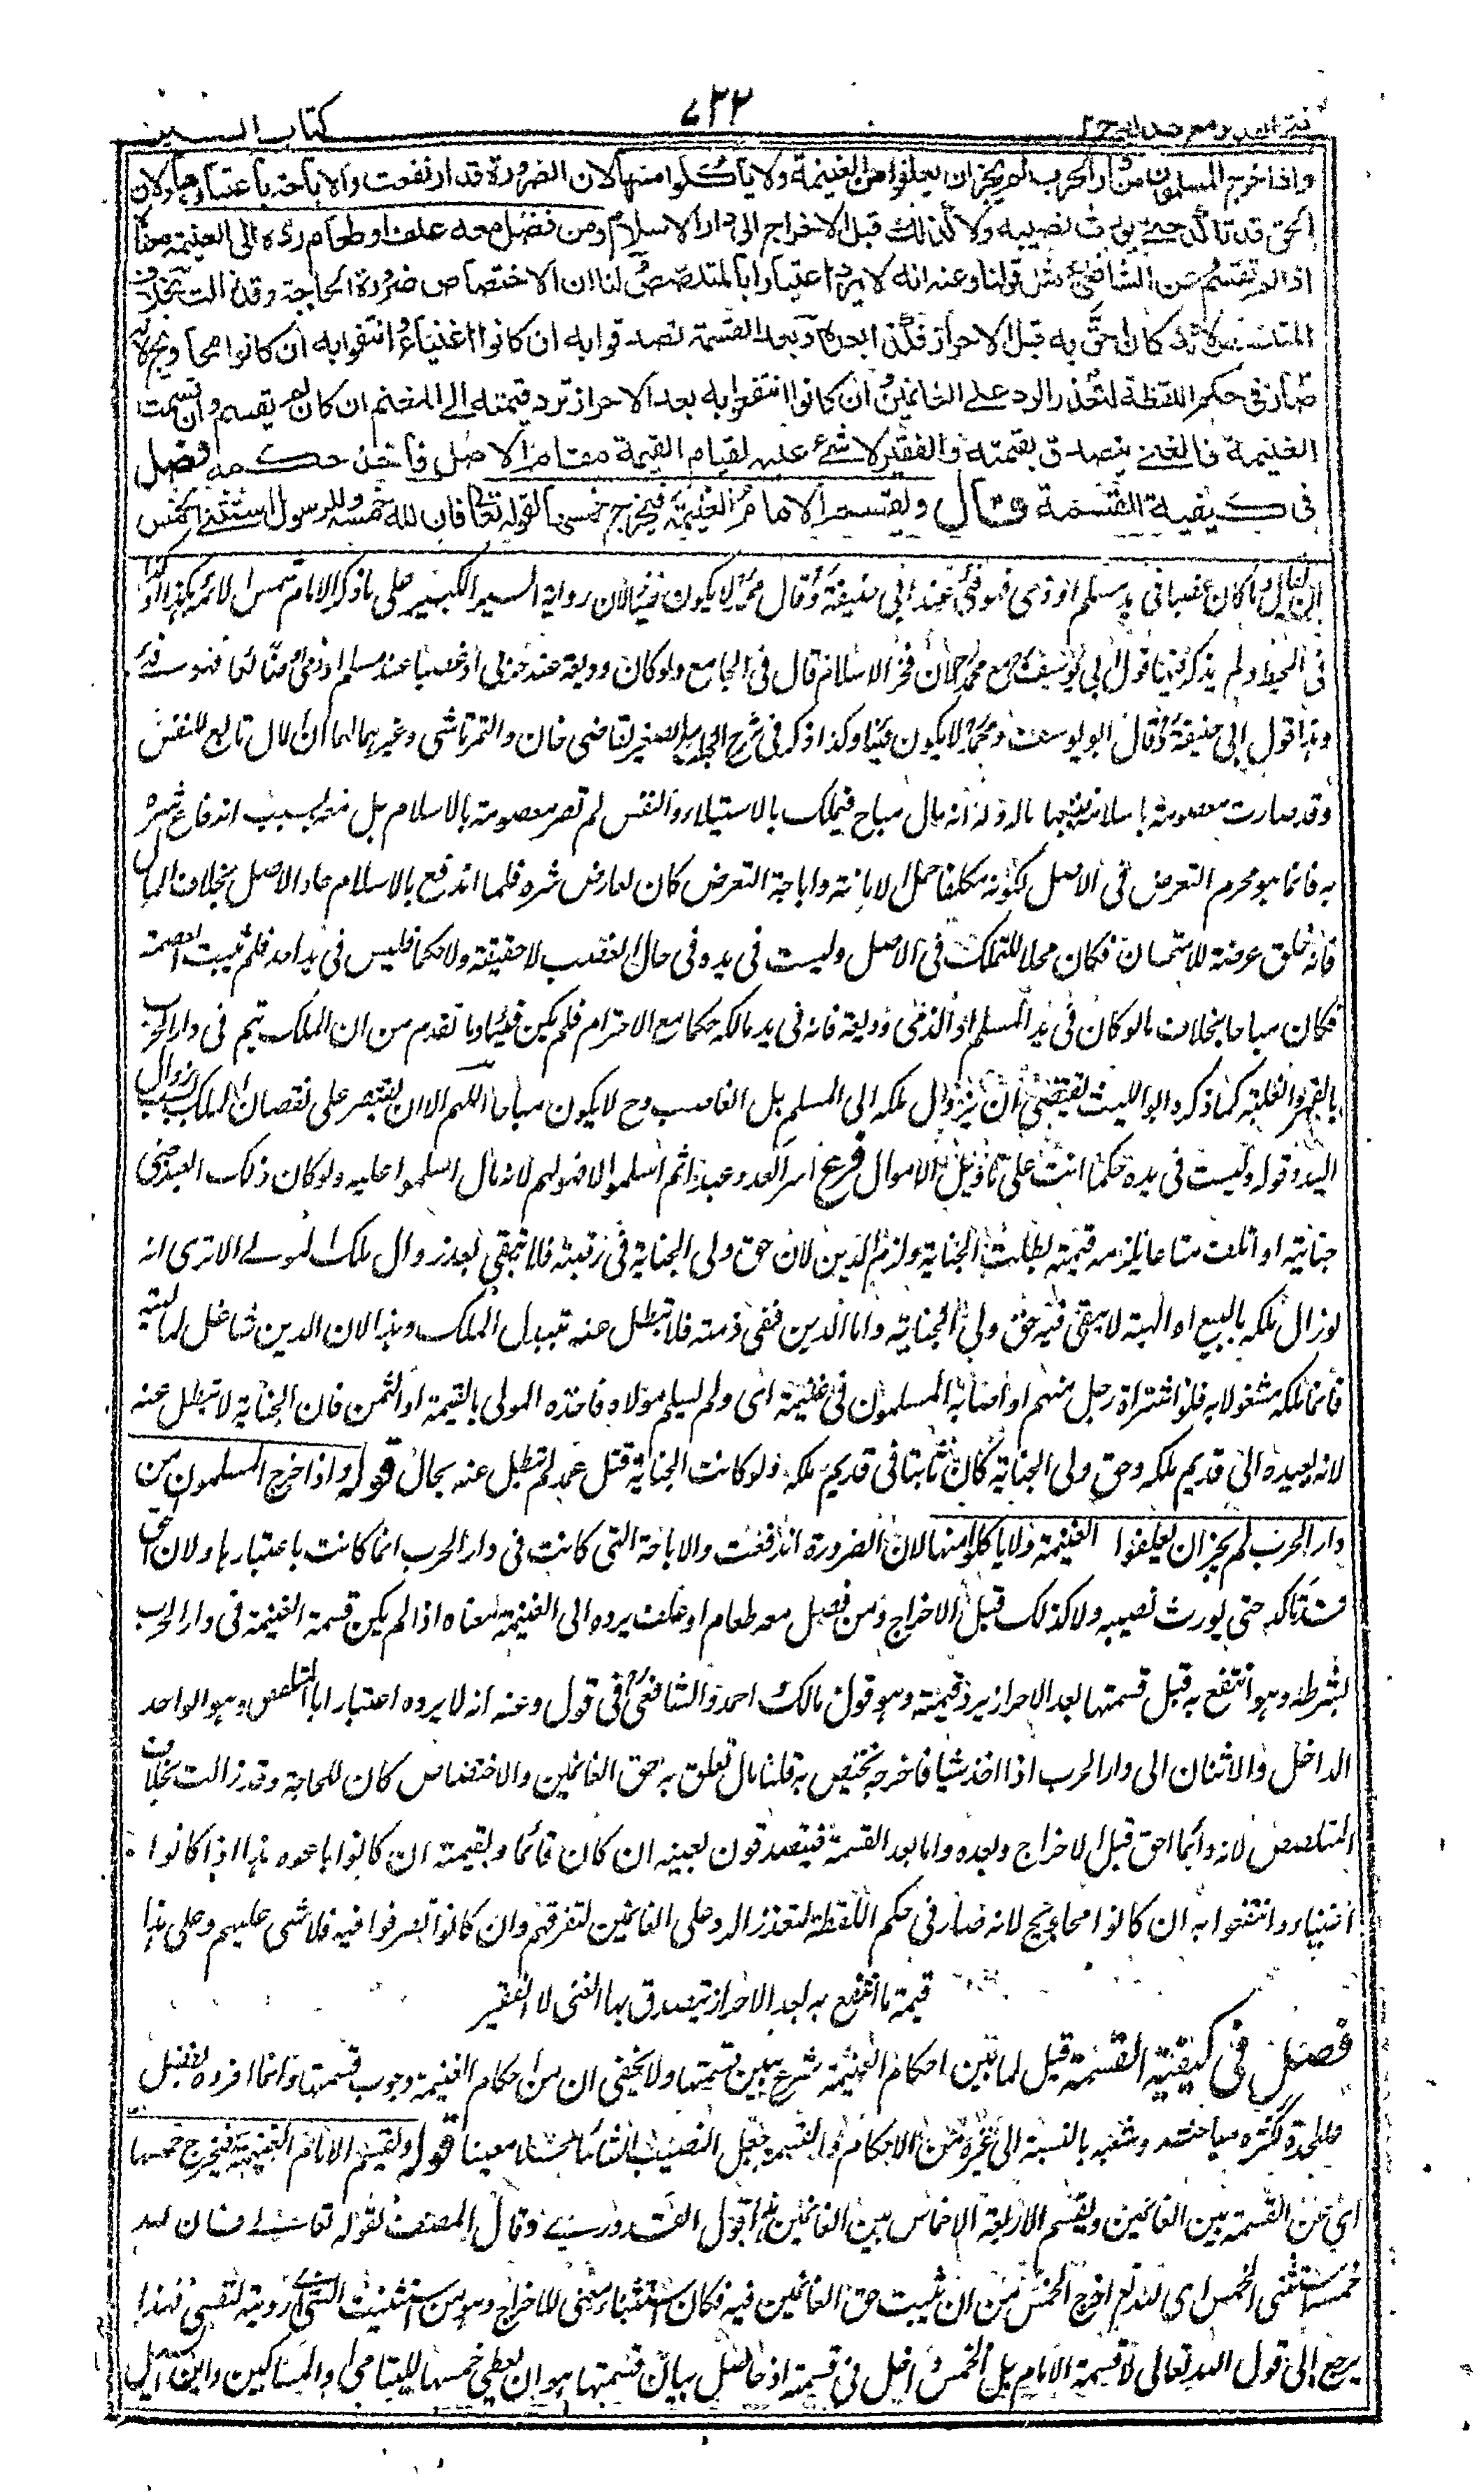 كتاب السير
٧٣٢
فتح القدير مع هداية ج ٢
واذا خرج المسلمون من دار الحرب لم يجز ان يعلفوا من الغنيمة ولا يأكلوا منها لان الضرورة قد ارتفعت والاباحة باعتبارها ولان
الحق قد تأكد حتى يورث نصيبه ولا كذلك قبل الاخراج الى دار الاسلام ومن فضل معه علف او طعام رده الى الغنيمة معناه
اذا لم تقسم وعن الشافعي مثل قولنا وعنه انه لا يرد اعتبارا بالمتلصص ولنا ان الاختصاص ضرورة الحاجة وقد زالت بخلاف
المتلصص لانه كان احق به قبل الاحراز فكذا بعده وبعد القسمة تصدقوا به ان كانوا اغنياء وانتفعوا به ان كانوا محاويج لانه
صار في حكم اللقطة لتعذر الرد على الغانمين وان كانوا انتفعوا به بعد الاحراز ترد قيمته الى المغنم ان كان لم يقسم وان قسمت
الغنيمة فالغني يتصدق بقيمته والفقير لا شئ عليه لقيام القيمة مقام الاصل فأخذ حكمه فصل
في كيفية القسمة قال ويقسم الامام الغنيمة فيخرج خمسها لقوله تعالى فان لله خمسه وللرسول استثنى الخمس
ان المال وما كان غصبا في يد مسلم او ذمي فهو فئ عند ابي حنيفة وقال محمد لا يكون فيئا لان رواية السير الكبير على ما ذكر الامام شمس الائمة هكذا وكذا
في المحيط ولم يذكر فيها قول ابي يوسف مع محمد الا ان فخر الاسلام قال في الجامع ولو كان وديعة عند حربي او غصبا عند مسلم او ذمي ضائعا فهو فئ
وهذا قول ابي حنيفة وقال ابو يوسف ومحمد لا يكون فيئا وكذا ذكر في شرح الجامع الصغير لقاضي خان والتمرتاشي وغيرهما لهما ان المال تابع للنفس
وقد صارت معصومة باسلامه فيتبعها ماله وله انه مال مباح فيملك بالاستيلاء والنفس لم تصر معصومة بالاسلام بل منه بسبب اندفاع شره
به فانما هو محرم التعرض في الاصل لكونه مكلفا حمل الامانة واباحة التعرض كان لعارض شره فلما اندفع بالاسلام عاد الاصل بخلاف المال
فانه خلق عرضة للامتهان فكان محلا للتملك في الاصل وليست في يده في حال الغصب لا حقيقة ولا حكما فليس في يد احد فلم تثبت العصمة
فكان مباحا بخلاف ما لو كان في يد المسلم او الذمي وديعة فانه في يد مالكه حكما مع الاحترام فلم يكن فيئا وما تقدم من ان الملك يتم في دار الحرب
بالقهر والغلبة كما ذكره ابو الليث يقتضي ان يزول ملكه الى المسلم بل الغاصب وح لا يكون مباحا اللهم الا ان يقتصر على نقصان الملك بسبب زوال
اليد وقوله وليست في يده حكما انث على تاويل الاموال فرع اسر العدو عبدا ثم اسلموا فهو لهم لانه مال اسلموا عليه ولو كان ذلك العبد جنى
جناية او اتلف متاعا يلزمه قيمته بطلت الجناية ولزم الدين لان حق ولي الجناية في رقبته فلا تبقى بعد زوال ملك المولى الا ترى انه
لو زال ملكه بالبيع او الهبة لا يبقى فيه حق ولي الجناية واما الدين ففي ذمته فلا تبطل عنه بتبدل الملك وهذا لان الدين شاغل لماليته
فانما ملكه مشغولا به فلو اشتراه رجل منهم او اصابه المسلمون في غنيمة اى ولم يسلم مولاه فاخذه المولى بالقيمة او الثمن فان الجناية لا تبطل عنه
لانه يعيده الى قديم ملكه وحق ولي الجناية كان ثابتا في قديم ملكه ولو كانت الجناية قتل عمد لم تبطل عنه بحال قوله واذا خرج المسلمون من
دار الحرب لم يجز ان يعلفوا الغنيمة ولا ياكلوا منها لان الضرورة اندفعت والاباحة التي كانت في دار الحرب انما كانت باعتبارها ولان الحق
قد تاكد حتى يورث نصيبه ولا كذلك قبل الاخراج ومن فضل معه طعام او علف يرده الى الغنيمة معناه اذا لم يكن قسمة الغنيمة في دار الحرب
بشرطه وهو انتفع به قبل قسمتها بعد الاحراز يرد قيمته وهو قول مالك واحمد والشافعي في قول وعنه انه لا يرده اعتبارا بالمتلصص وهو الواحد
الداخل والاثنان الى دار الحرب اذا اخذ شيا فاخرجه يختص به قلنا مال تعلق به حق الغانمين والاختصاص كان للحاجة وقد زالت بخلاف
المتلصص لانه دائما احق قبل الاخراج وبعده واما بعد القسمة فيتصدقون بعينه ان كان قائما وبقيمته ان كانوا باعوه هذا اذا كانوا
اغنياء وانتفعوا به ان كانوا محاويج لانه صار في حكم اللقطة لتعذر الرد على الغانمين لتفرقهم وان كانوا تصرفوا فيه فلا شئ عليهم وعلى هذا
قيمة ما انتفع به بعد الاحراز يتصدق بها الغني لا الفقير
فصل في كيفية القسمة قيل لما بين احكام الغنيمة شرع يبين قسمتها ولا يخفى ان من احكام الغنيمة وجوب قسمتها وانما افرده بفصل
على حدة لكثرة مباحثه وشعبه بالنسبة الى غيره من الاحكام والقسمة جعل النصيب الشائع معينا قوله ويقسم الامام الغنيمة فيخرج خمسها
اي عن القسمة بين الغانمين ويقسم الاربعة الاخماس بين الغانمين هذا قول القدوري وقال المصنف لقوله تعالى فان لله
خمسه استثنى الخمس اى الله تع اخرج الخمس من ان يثبت حق الغانمين فيه فكان استثناء معنى للاخراج وهو من استثنيت الشئ زويته لنفسي فهذا
يرجع الى قول الله تعالى لا قسمة الامام بل الخمس داخل في قسمته اذ حاصل بيان قسمتها هو ان يعطي خمسها لليتامى والمساكين وابن السبيل